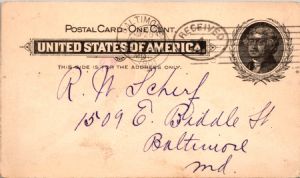 POSTAL CARD-ONE CENT.
BALTIMO
RECEIVED
UNITED STATES OF AMERICA.
THIS SIDE IS FOR THE ADDRESS ONLY.
R. W. Scherf
1509 E. Biddle St
Baltimore
Md.